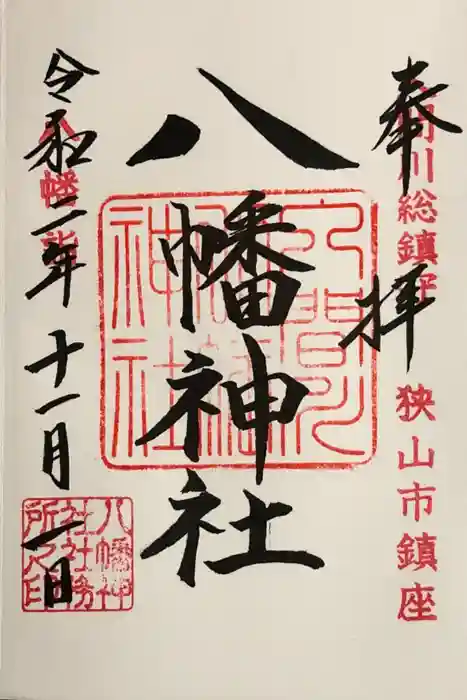 奉拝
入間川総鎮守
狭山市鎮座
八幡神社
入間川
八幡神社
令和二年十一月一日
八幡神社社務所之印